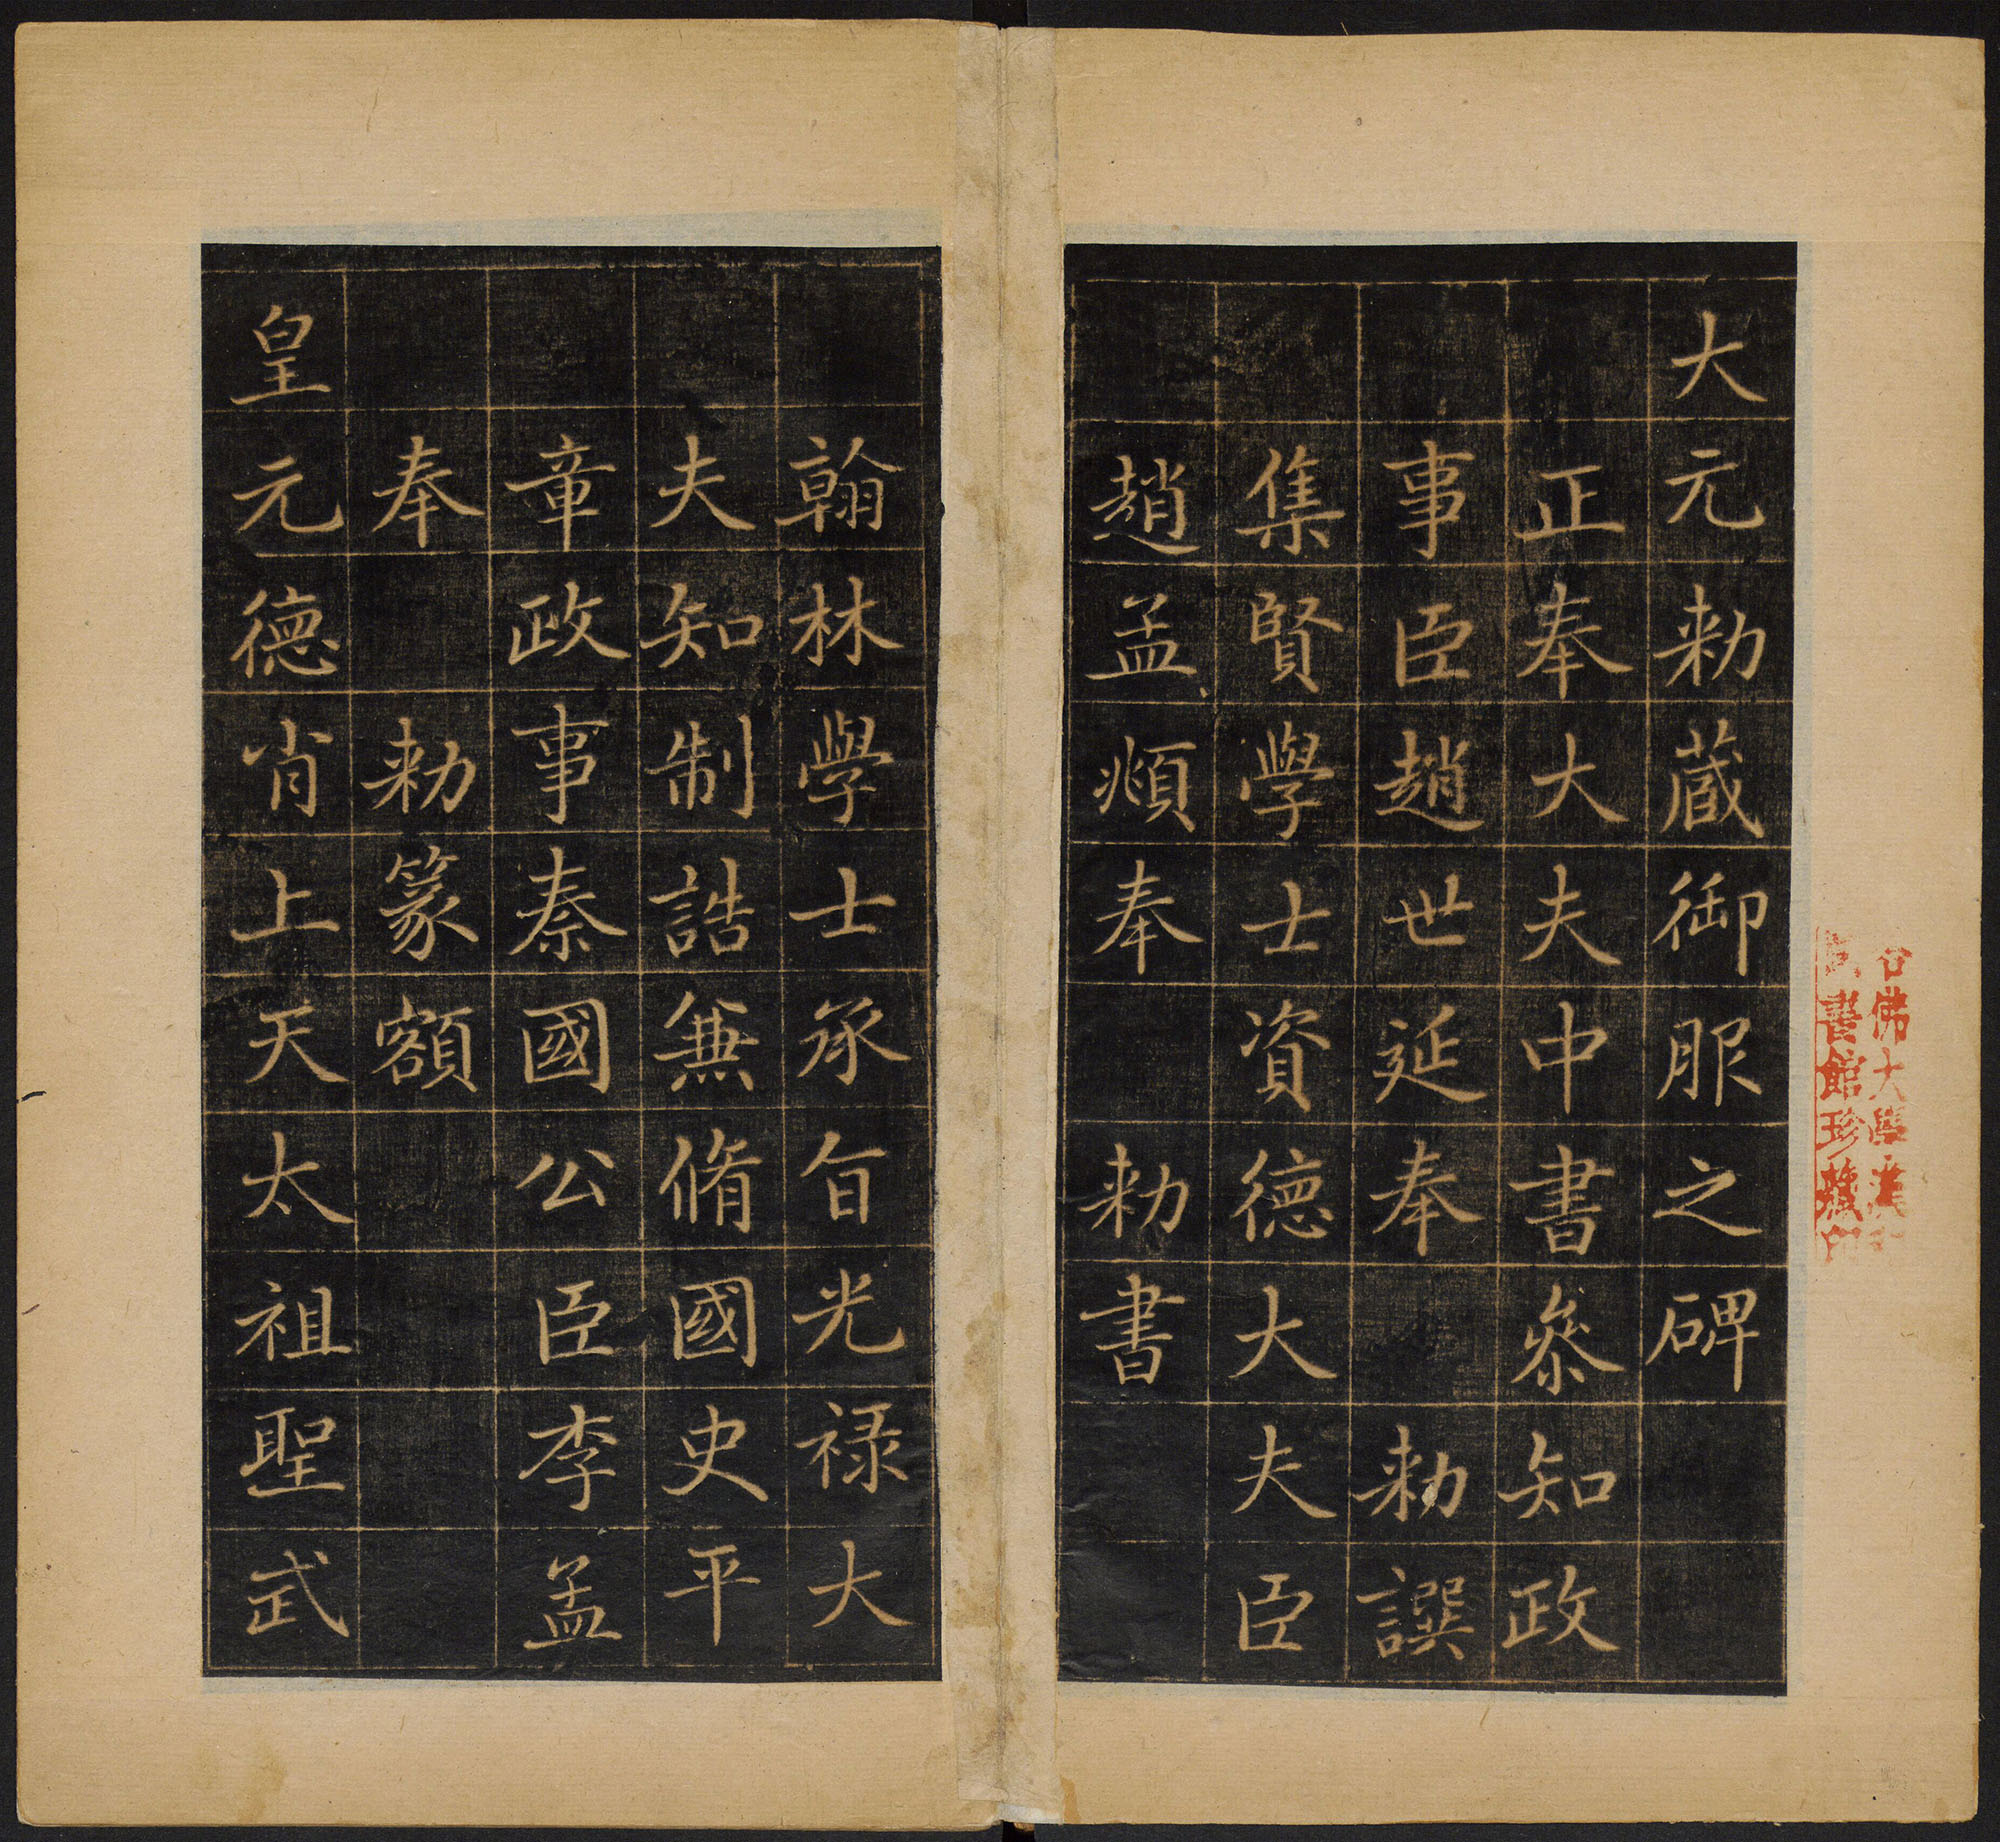 大元勑蔵御服之碑
正奉大夫中書叅知政
事臣趙世延奉　勑譔
集賢學士資德大夫臣
趙孟頫奉　勑書
翰林學士承旨光禄大
夫知制誥兼脩國史平
章政事秦國公臣李孟
奉　勑篆額
皇元德肖上天太祖聖武
佛大學漢
書館珍藏印